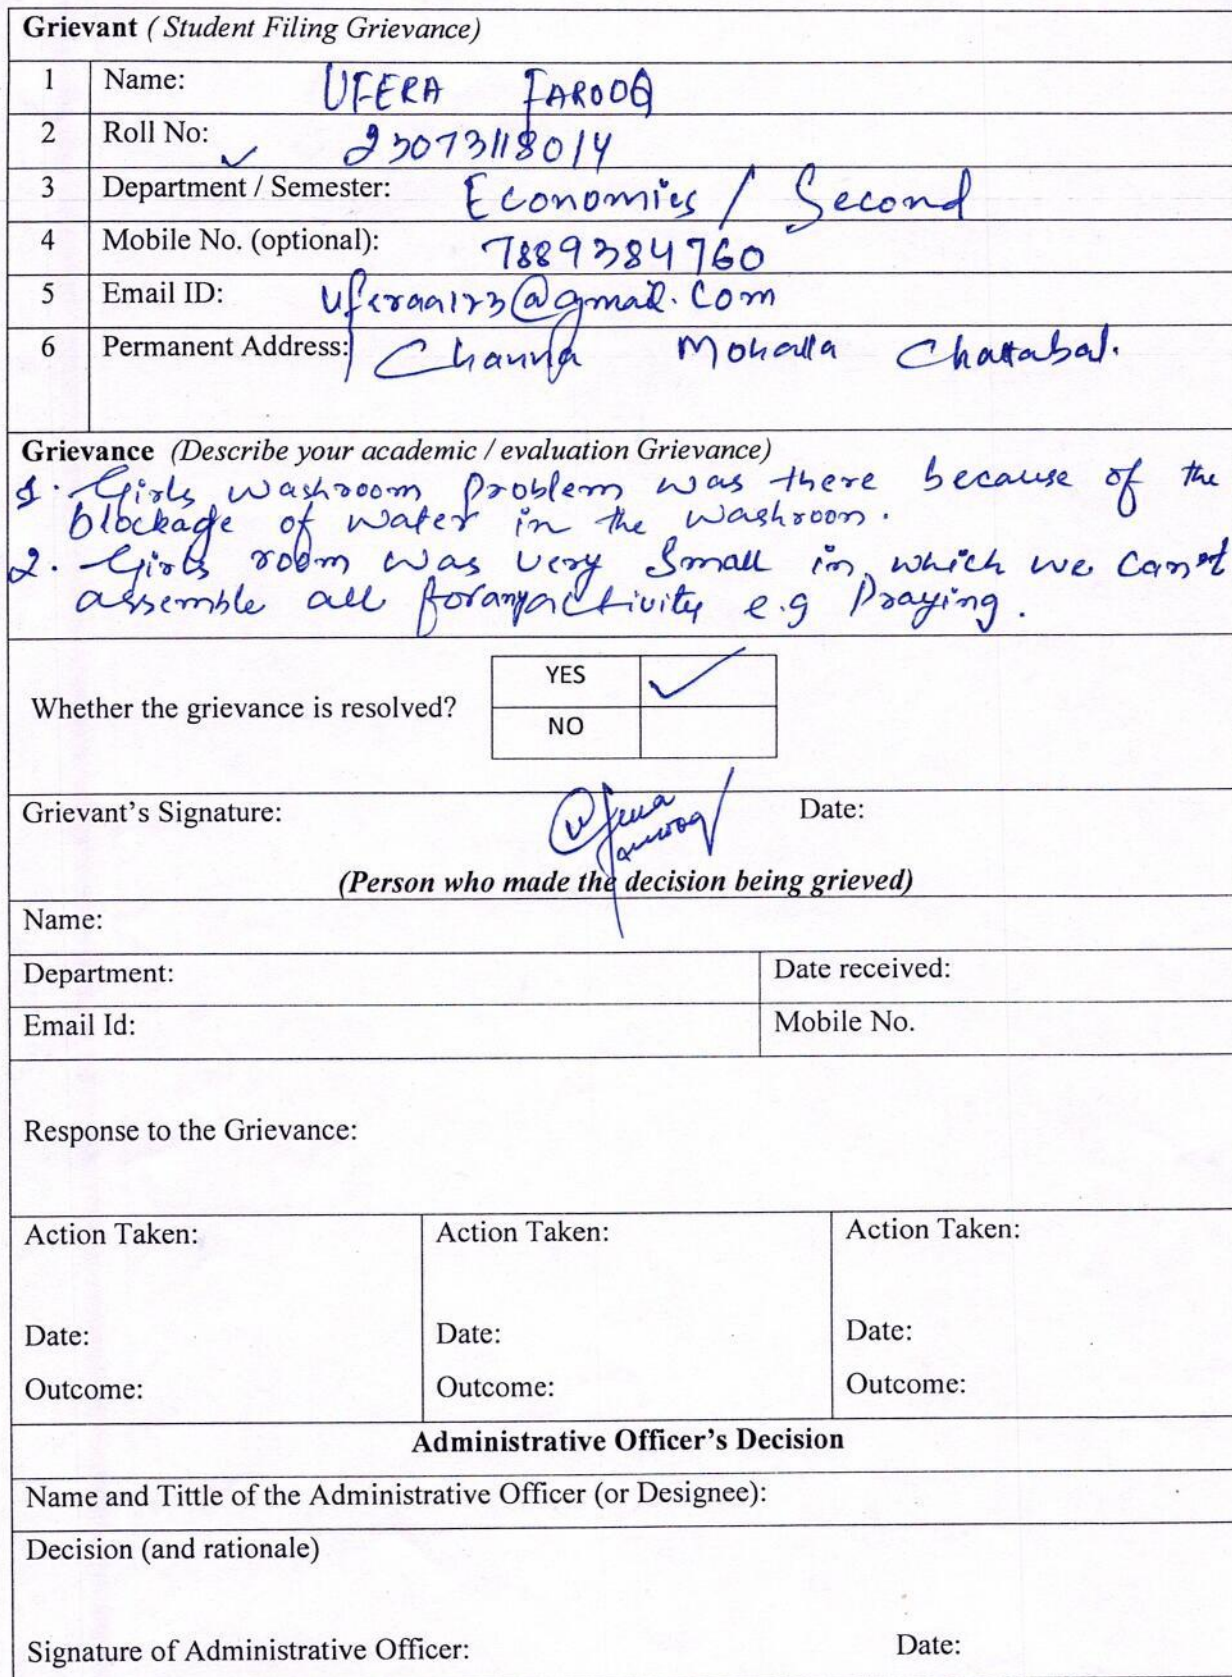 Grievant ( Student Filing Grievance)
1 Name: UFERA FAROOQ
2 Roll No: 23073118014
3 Department / Semester: Economics / Second
4 Mobile No. (optional): 7889384760
5 Email ID: uferaa123@gmail.com
6 Permanent Address: Channa Mohalla Chattabal.
Grievance (Describe your academic / evaluation Grievance)
1. Girls washroom problem was there because of the
blockage of water in the washroom.
2. Girls room was very small in which we cannot
assemble all for any activity e.g Praying.
Whether the grievance is resolved?
YES ✓
NO
Grievant's Signature: Ufera Farooq Date:
(Person who made the decision being grieved)
Name:
Department: Date received:
Email Id: Mobile No.
Response to the Grievance:
Action Taken: Action Taken: Action Taken:
Date: Date: Date:
Outcome: Outcome: Outcome:
Administrative Officer's Decision
Name and Tittle of the Administrative Officer (or Designee):
Decision (and rationale)
Signature of Administrative Officer: Date: